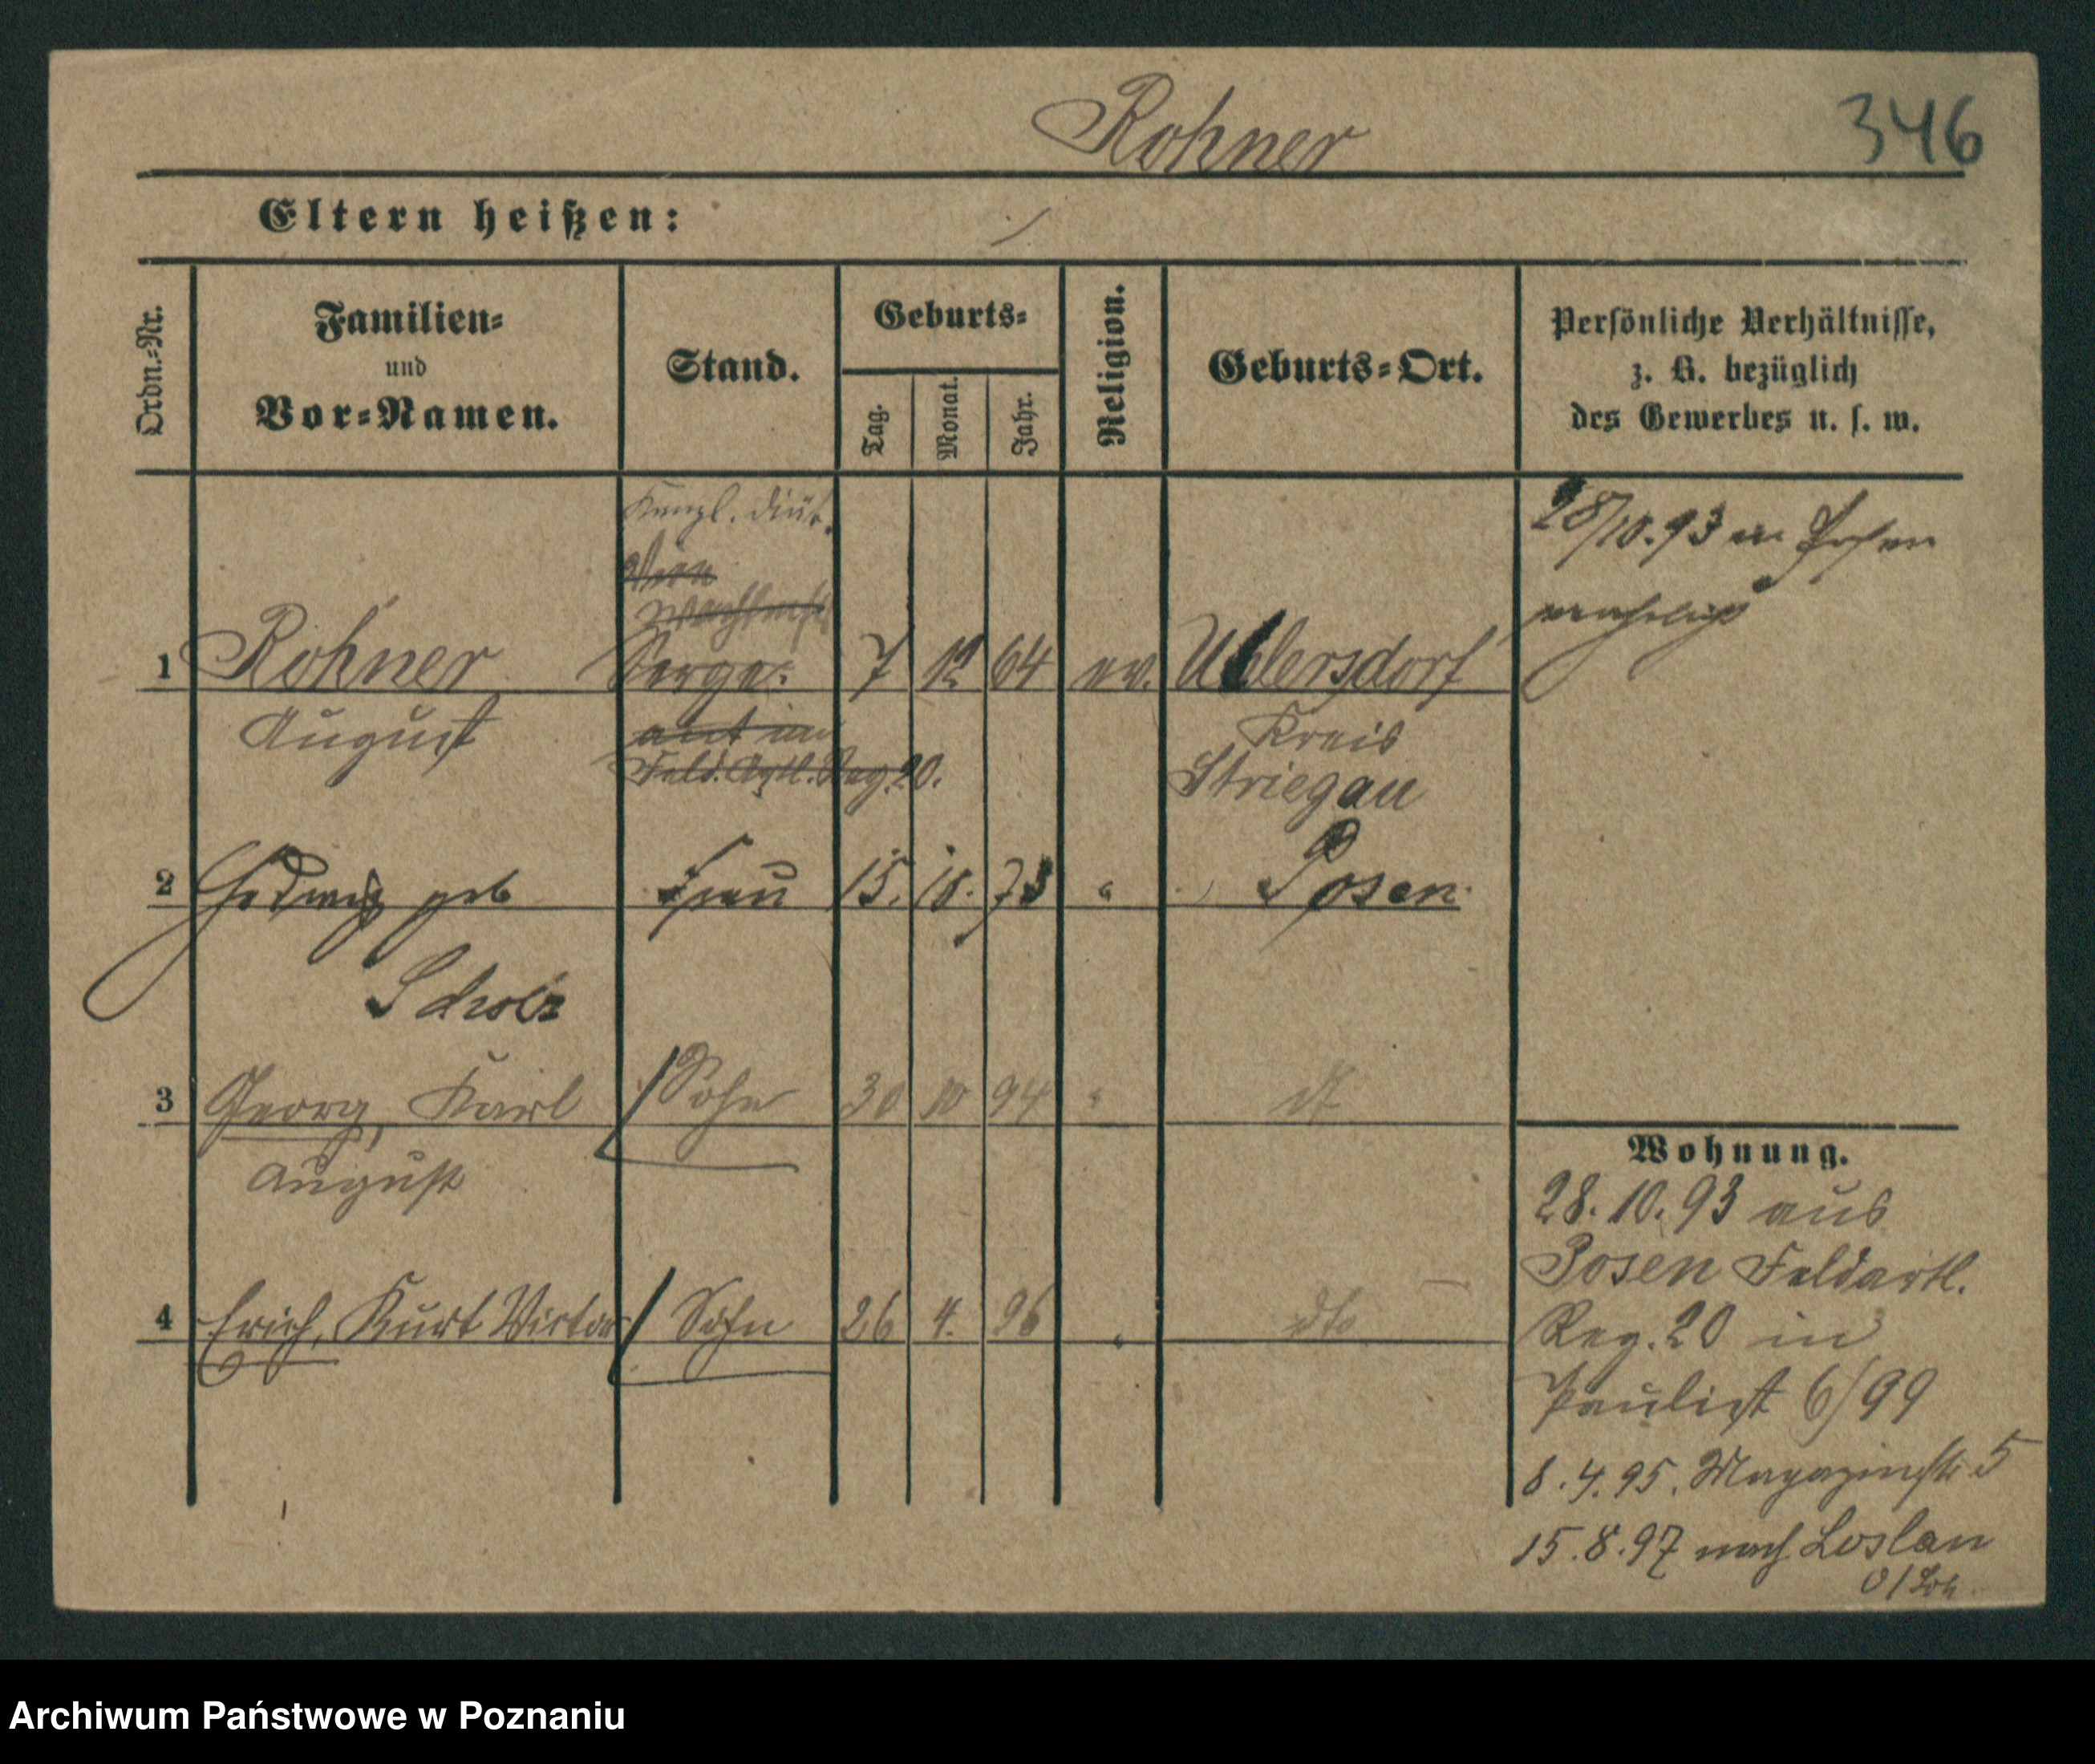 Rohner 346
Eltern heißen:
Ordn.-Nr.
Familien-
und
Vor-Namen.
Stand.
Geburts-
Tag.
Monat.
Jahr.
Religion.
Geburts-Ort.
Persönliche Verhältnisse,
z. B. bezüglich
des Gewerbes u. s. w.
Kanzl. Diät.
28/10.93 in Posen
1 Rohner Serge. 7 12 64 ev. Ullersdorf
August
Kreis
Feld. Artl. Reg. 20.
Striegau
2 Hedwig geb Frau 15. 10. 73 " Posen
Scholz
3 Georg, Karl Sohn 30 10 94 " dt
August
4 Erich, Kurt Victor Sohn 26 4. 96 " dto
Wohnung.
28. 10. 93 aus
Posen Feldartl.
Reg. 20 in
Paulist 6/99
8. 4. 95. Magazinstr. 5
15. 8. 97 nach Loslau